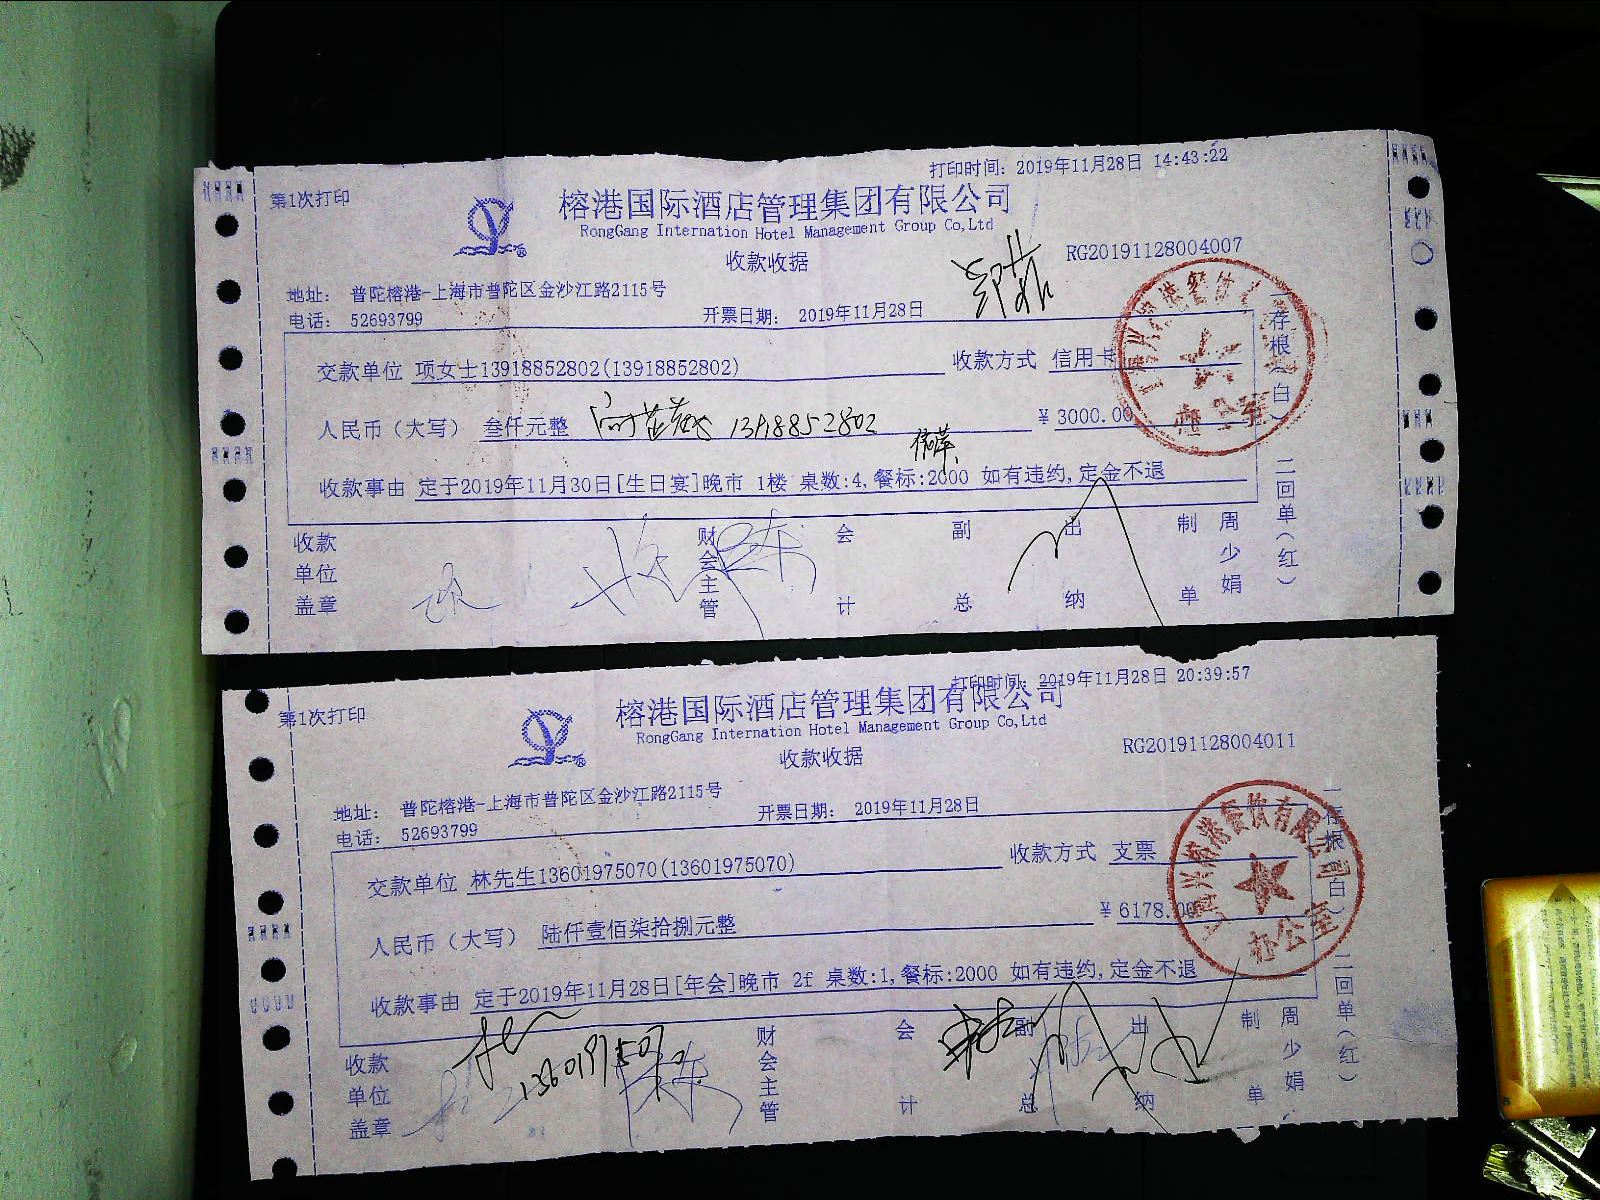 打印时间: 2019年11月28日 14:43:22
第1次打印
榕港国际酒店管理集团有限公司
RongGang Internation Hotel Management Group Co,Ltd
收款收据
RG20191128004007
地址: 普陀榕港-上海市普陀区金沙江路2115号
电话: 52693799
开票日期: 2019年11月28日
交款单位 项女士13918852802(13918852802) 收款方式 信用卡
人民币（大写） 叁仟元整 13918852802 ¥ 3000.00
收款事由 定于2019年11月30日[生日宴]晚市 1楼 桌数:4,餐标:2000 如有违约,定金不退
收款单位盖章 财会主管 会计 副总 出纳 制单 周少娟
一存根（白） 二回单（红）
办公室
打印时间: 2019年11月28日 20:39:57
第1次打印
榕港国际酒店管理集团有限公司
RongGang Internation Hotel Management Group Co,Ltd
收款收据
RG20191128004011
地址: 普陀榕港-上海市普陀区金沙江路2115号
电话: 52693799
开票日期: 2019年11月28日
交款单位 林先生13601975070(13601975070) 收款方式 支票
人民币（大写） 陆仟壹佰柒拾捌元整 ¥ 6178.00
收款事由 定于2019年11月28日[年会]晚市 2f 桌数:1,餐标:2000 如有违约,定金不退
13601975070
收款单位盖章 财会主管 会计 副总 出纳 制单 周少娟
一存根（白） 二回单（红）
兴榕港餐饮有限公司
办公室